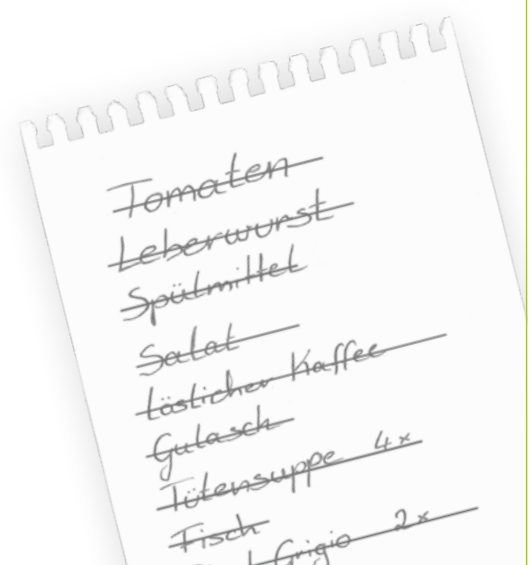 Tomaten
Leberwurst
Spülmittel
Salat
löslicher Kaffee
Gulasch
Tütensuppe 4x
Fisch
Grigio 2x